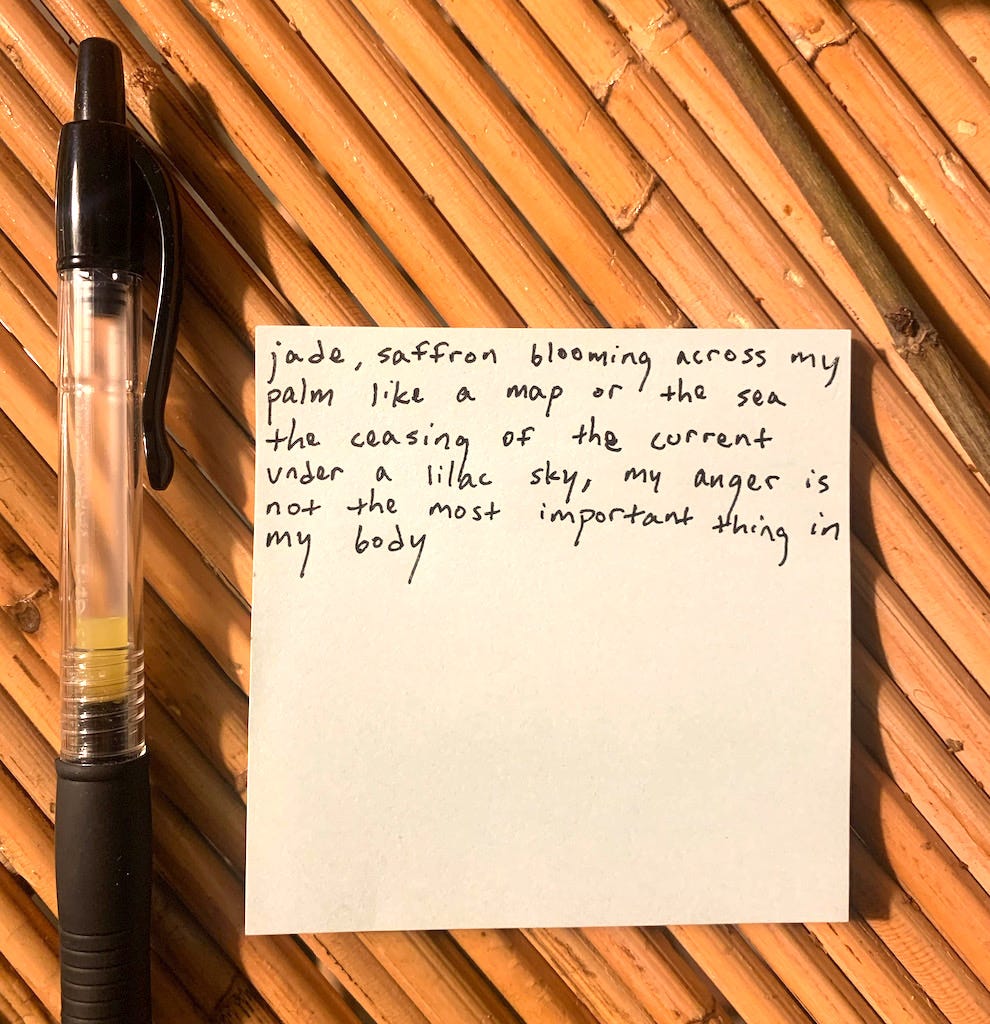 jade, saffron blooming across my
palm like a map or the sea
the ceasing of the current
under a lilac sky, my anger is
not the most important thing in
my body